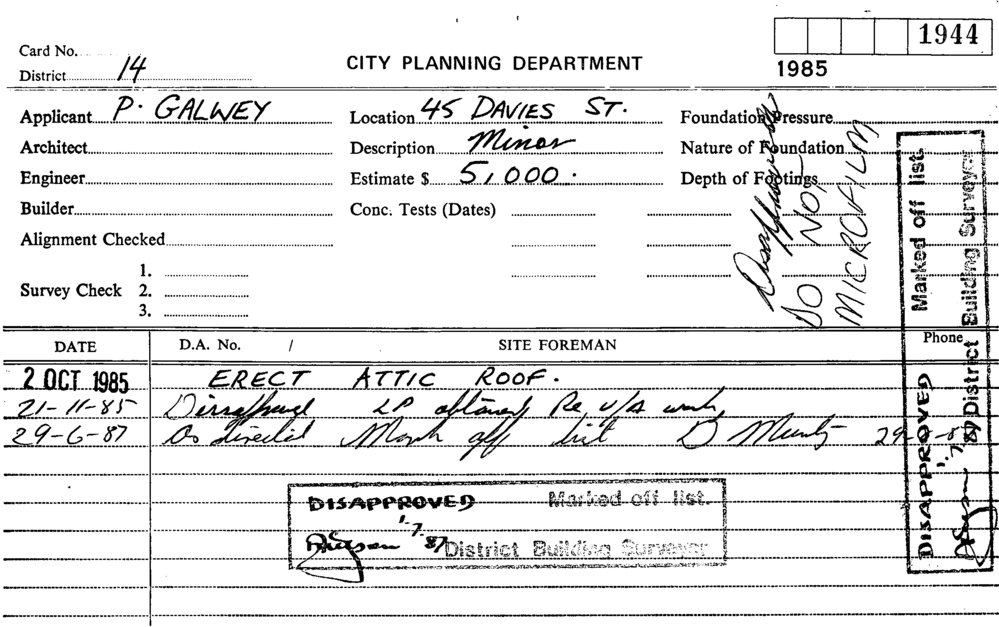 1944
1985
Card No.
District 14
CITY PLANNING DEPARTMENT
Applicant P. GALWEY
Location 45 DAVIES ST.
Foundation Pressure
Architect
Description Minor
Nature of Foundation
Engineer
Estimate $ 5,000.
Depth of Footings
Builder
Conc. Tests (Dates)
Alignment Checked
Survey Check
1.
2.
3.
DO NOT
MICROFILM
DATE D.A. No. / SITE FOREMAN Phone
2 OCT 1985 ERECT ATTIC ROOF.
21-11-85 LP obtained Re u/a work
29-6-87 As directed Mark off list D
DISAPPROVED Marked off list.
1.7.87 District Building Surveyor
DISAPPROVED Marked off list.
1.7.87 District Building Surveyor